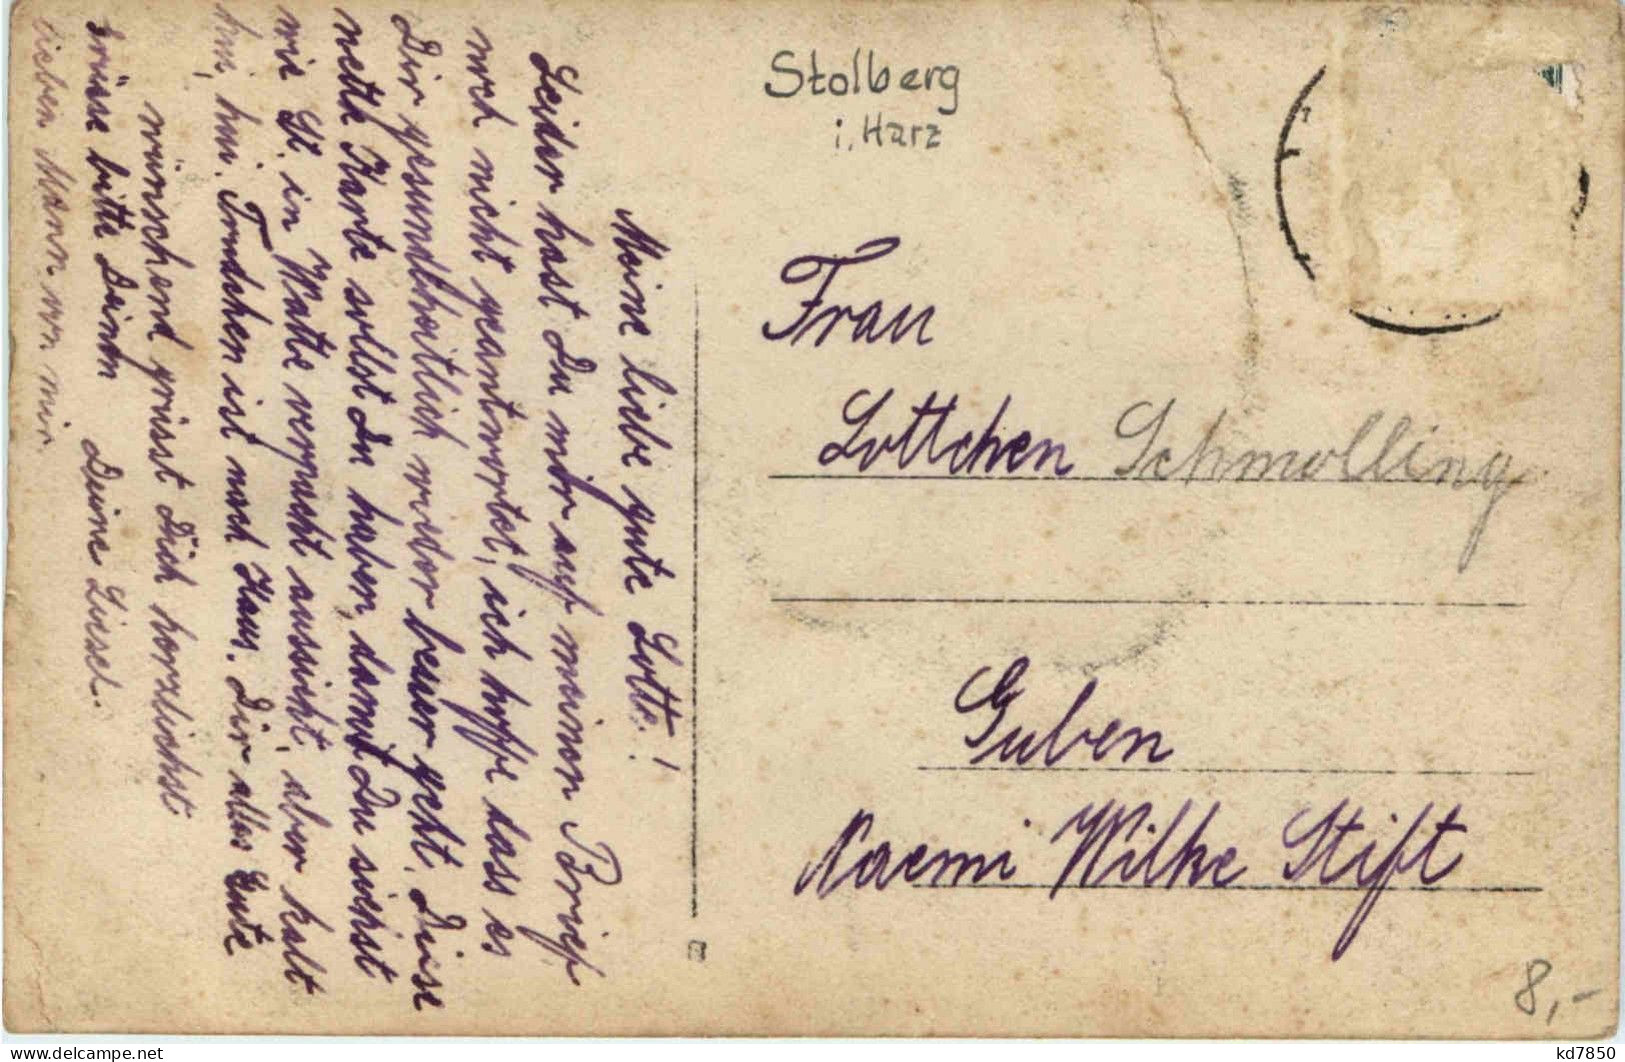 Meine liebe gute Lotte!
Leider hast Du mir auf meinen Brief
noch nicht geantwortet, ich hoffe dass es
Dir gesundheitlich wieder besser geht. Diese
nette Karte sollst Du haben, damit Du siehst
wie St. in Watte verpackt aussieht, aber kalt
hui, hui. Trudchen ist nach Haus. Dir alles Gute
wünschend grüsst Dich herzlichst
Deine Liesel.
Grüsse bitte Deinen
lieben Mann von mir.
Stolberg
i. Harz
Frau
Lottchen Schmolling
Guben
Naemi Wilke Stift
8,-
kd7850